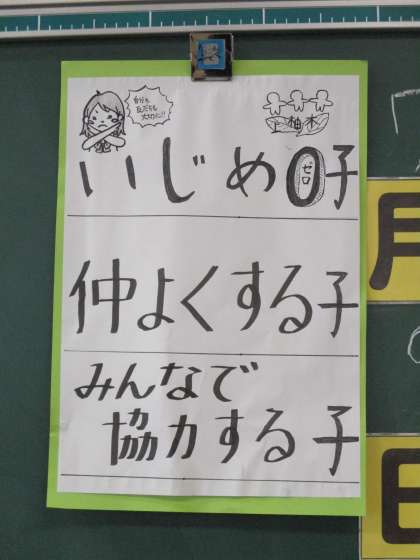 自分も
友だちも
大切に!!
上柚木
いじめ0子
ゼロ
仲よくする子
みんなで
協力する子
月
日